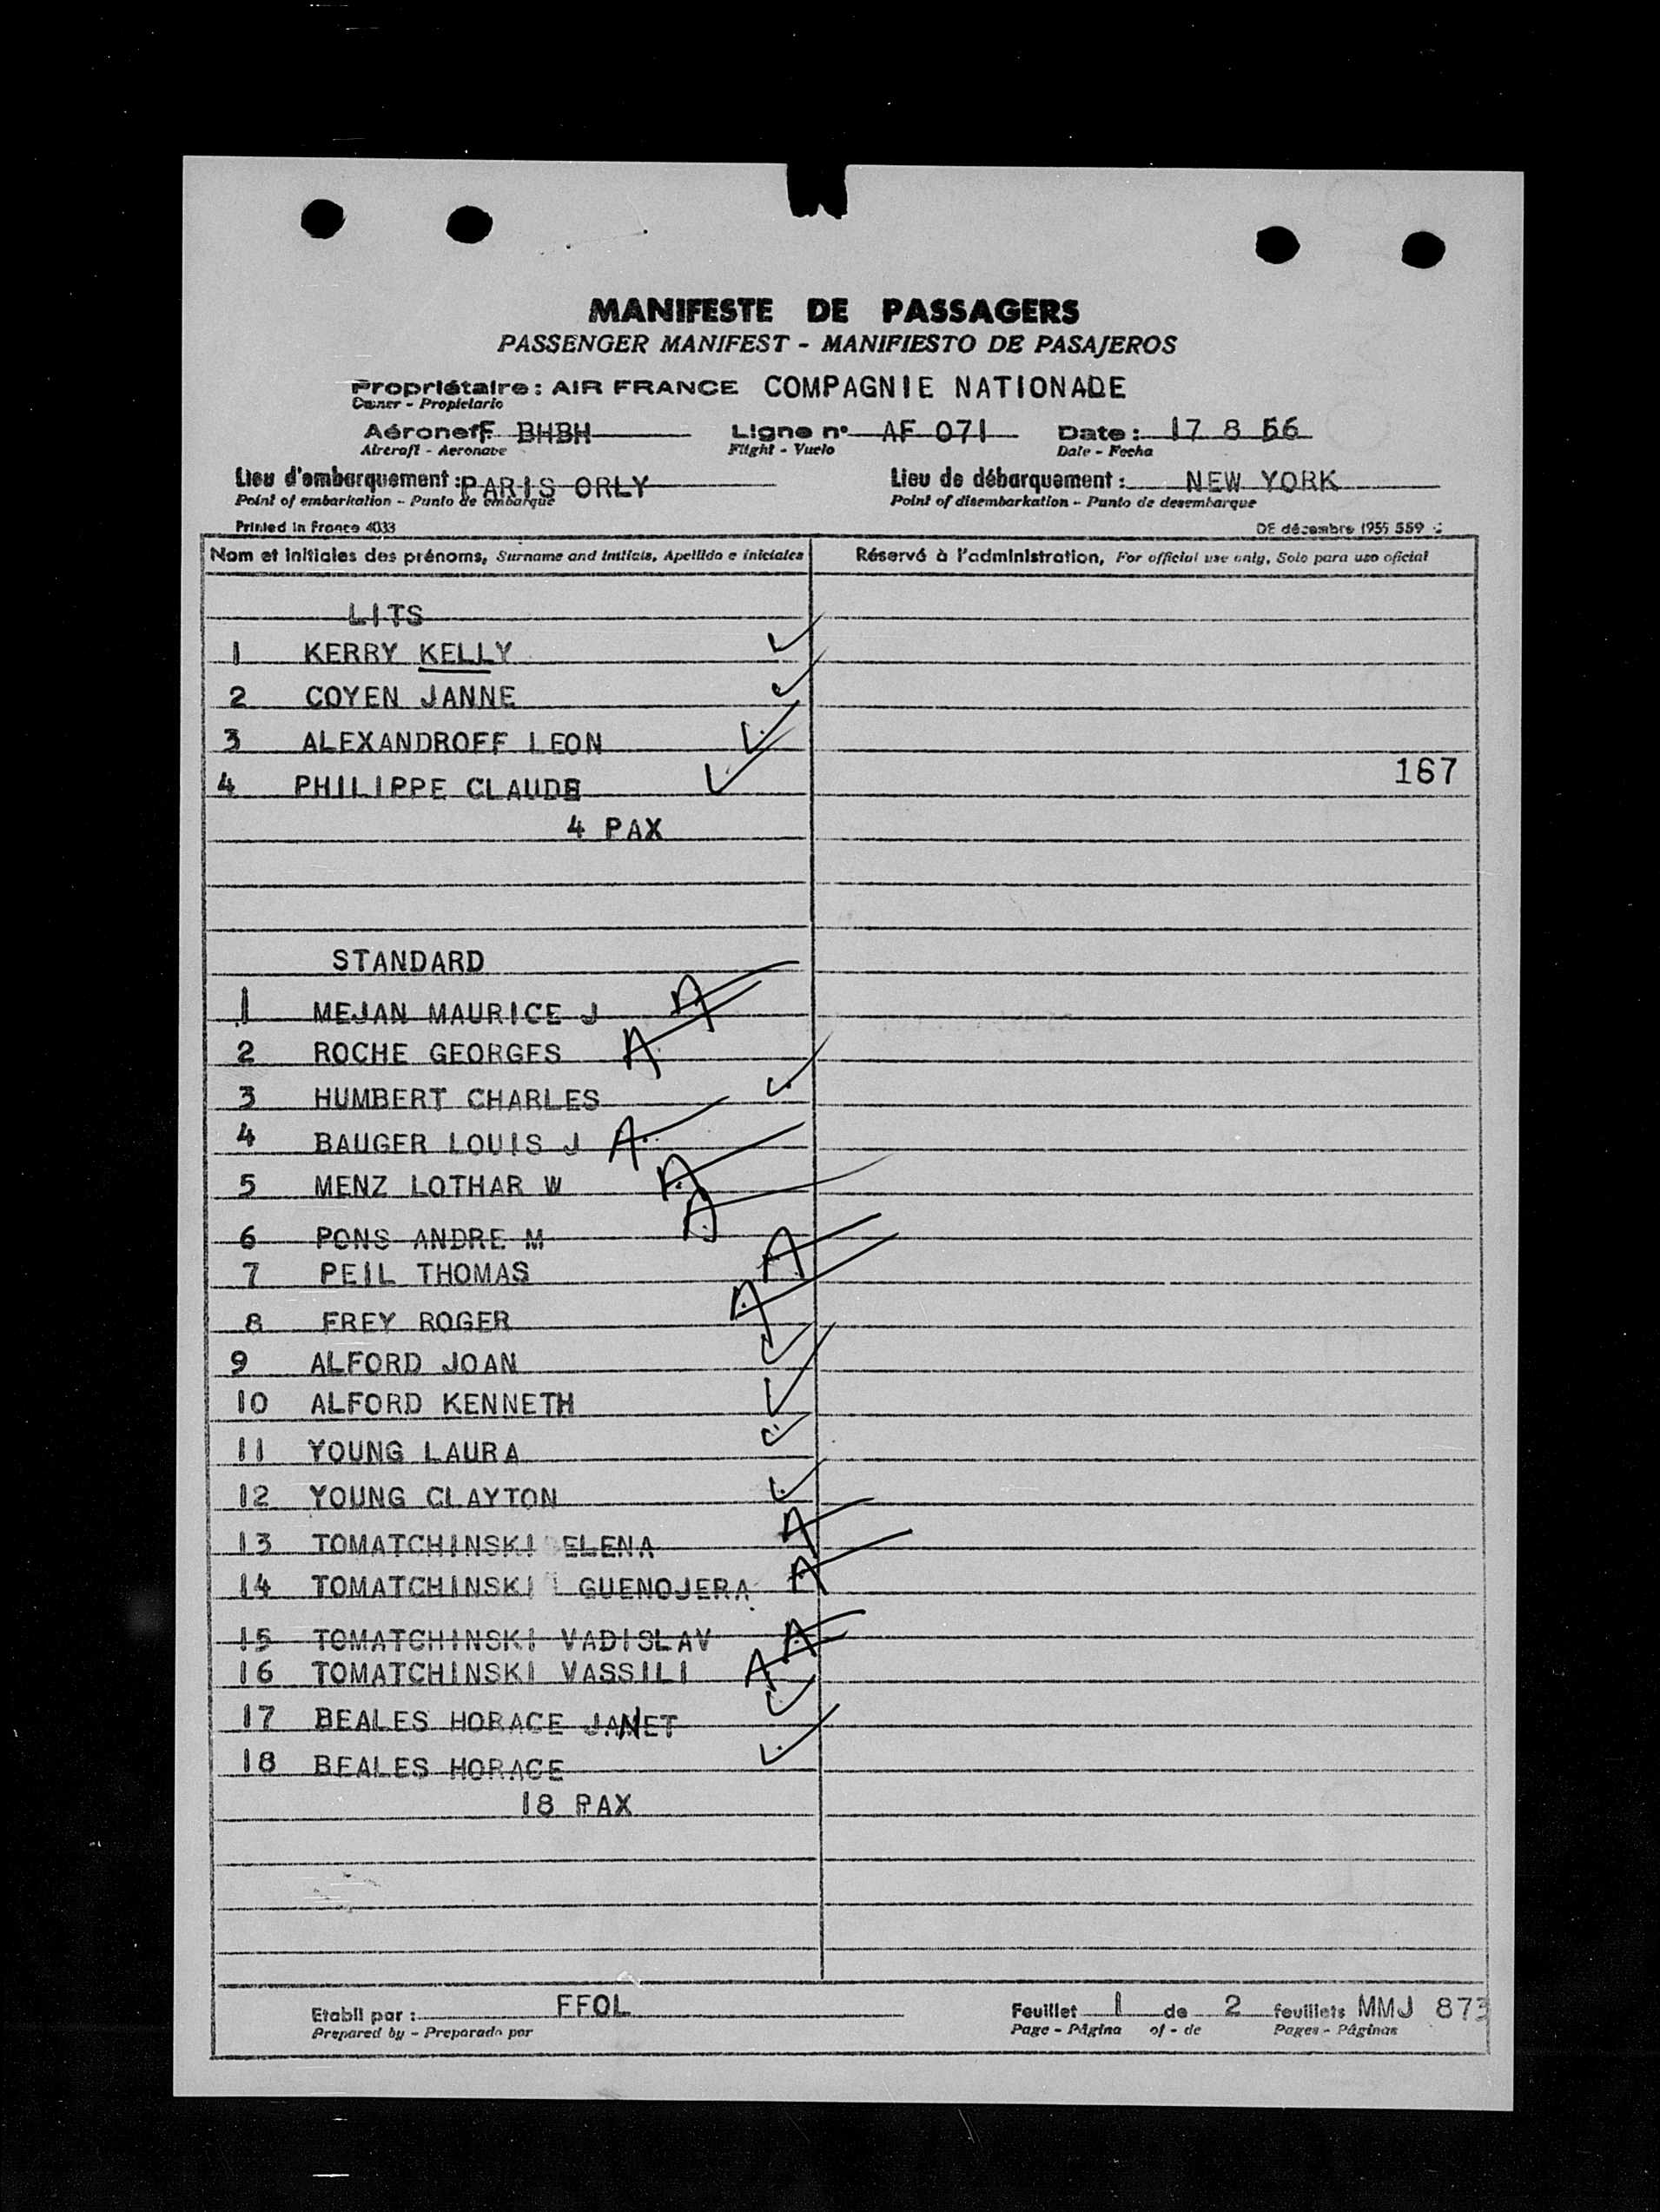 MANIFESTE DE PASSAGERS
PASSENGER MANIFEST - MANIFIESTO DE PASAJEROS
Propriétaire : AIR FRANCE COMPAGNIE NATIONADE
Owner - Propietario
Aéronef F BHBH Ligne n° AF 071 Date : 17 8 56
Aircraft - Aeronave Flight - Vuelo Date - Fecha
Lieu d'embarquement : PARIS ORLY Lieu de débarquement : NEW YORK
Point of embarkation - Punto de embarque Point of disembarkation - Punto de desembarque
Printed in France 4033 DE décembre 1955 559
Nom et initiales des prénoms, Surname and initials, Apellido e iniciales Réservé à l'administration, For official use only, Solo para uso oficial
LITS
1 KERRY KELLY
2 COYEN JANNE
3 ALEXANDROFF LEON
167
4 PHILIPPE CLAUDE
4 PAX
STANDARD
1 MEJAN MAURICE J A
2 ROCHE GEORGES A
3 HUMBERT CHARLES
4 BAUGER LOUIS J A
5 MENZ LOTHAR W A
6 PONS ANDRE M A
7 PEIL THOMAS A
8 FREY ROGER A
9 ALFORD JOAN
10 ALFORD KENNETH
11 YOUNG LAURA
12 YOUNG CLAYTON
13 TOMATCHINSKI ELENA A
14 TOMATCHINSKI GUENOJERA A
15 TOMATCHINSKI VADISLAV A
16 TOMATCHINSKI VASSILI A
17 BEALES HORACE JANET
18 BEALES HORACE
18 PAX
Etabli par : FFOL Feuillet 1 de 2 feuillets MMJ 873
Prepared by - Preparado por Page - Página of - de Pages - Páginas